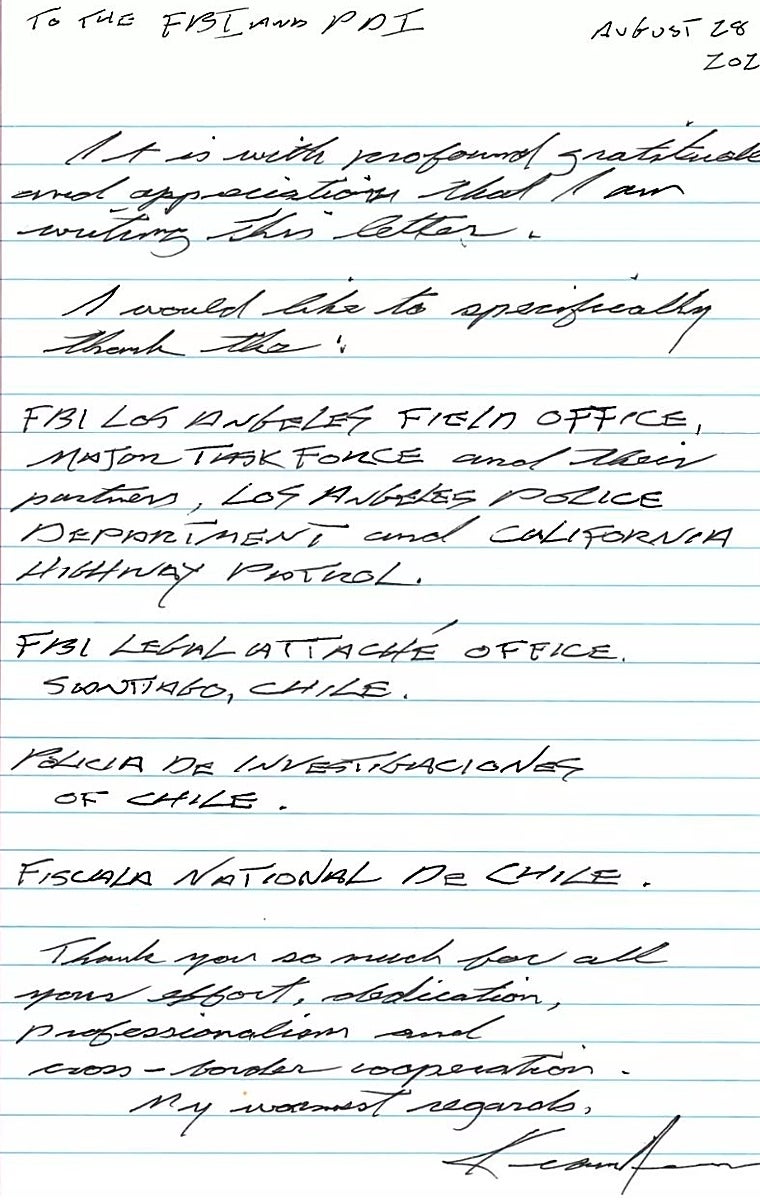 TO THE FBI AND PDI
AUGUST 28
202
It is with profound gratitude
and appreciation that I am
writing this letter.
I would like to specifically
thank the:
FBI LOS ANGELES FIELD OFFICE,
MAJOR TASK FORCE and their
partners, LOS ANGELES POLICE
DEPARTMENT and CALIFORNIA
HIGHWAY PATROL.
FBI LEGAL ATTACHÉ OFFICE.
SANTIAGO, CHILE.
POLICIA DE INVESTIGACIONES
OF CHILE.
FISCALA NATIONAL De CHILE.
Thank you so much for all
your effort, dedication,
professionalism and
cross-border cooperation.
My warmest regards,